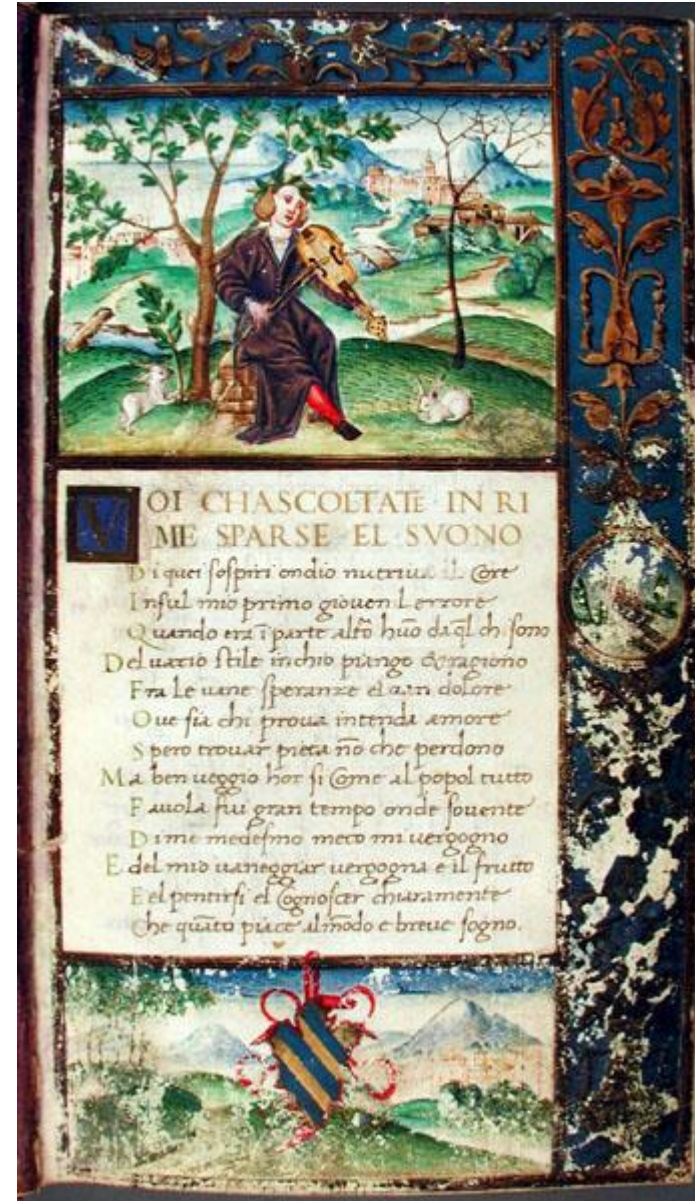 VOI CHASCOLTATE IN RI
ME SPARSE EL SVONO
Di quei sospiri ondio nutriua il Core
In sul mio primo giouenil errore
Quando era ĩ parte altrõ huõ da q̃l ch sono
Del uario stile inchio piango & ragiono
Fra le uane speranze el uan dolore
Oue sia chi proua intenda amore
Spero trouar pieta nõ che perdono
Ma ben ueggio hor si Come al popol tutto
Fauola fui gran tempo onde souente
Di me medesmo meco mi uergogno
E del mio uaneggiar uergogna e il frutto
E el pentirsi el Cognoscer chiaramente
Che quãto piace al mõdo e breue sogno.